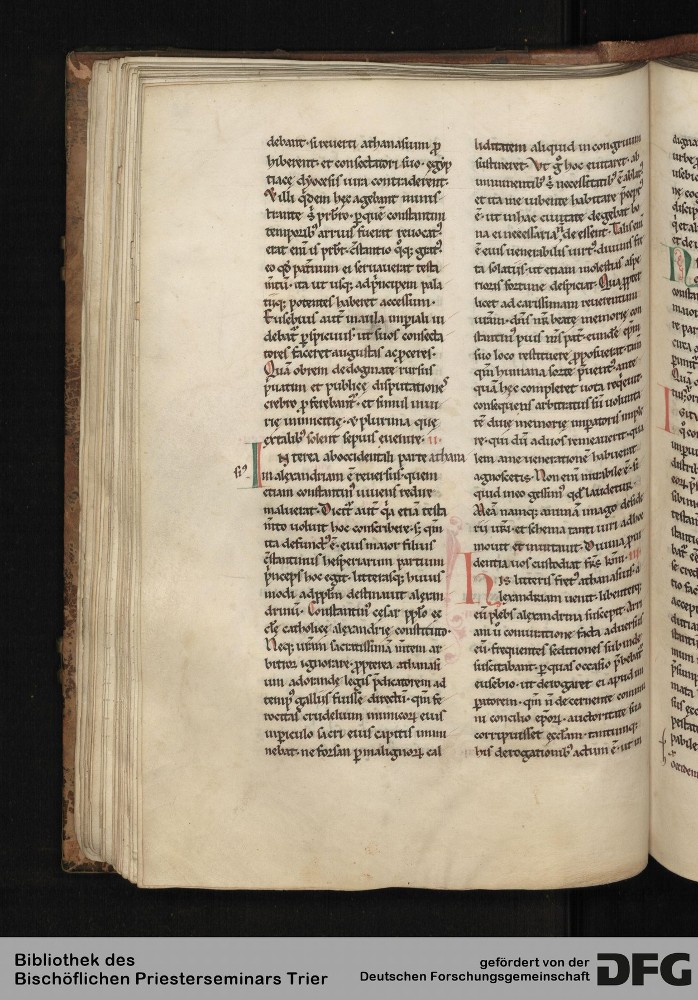 debant· si reuerti athanasium ꝓ
hiberent· et consectatori suo· egyp
tiace dyocesis iura contraderent·
illi qͥdem hęc agebant minis
trante pͬbro· ꝑ quē constantini
temporibꝰ arrius fuerat reuocatꝰ·
eo qđ patrinum ei seruauerat testa
mtū· ita ut usqꝫ ad pͥncipem pala
tiiqꝫ potentes haberet accessum·
Eusebius autͫ in aula imperiali in
debat ꝑspicuius· ut suos consecta
tores faceret augustas ac proceres·
Quā obrem de dogmate rursus
pͥuatim et publicę disputationeˢ
crebro ꝓferebantͬ· et simul iniu
rię inimicitię· et plurima quę
ex talibꝰ solent sepius euenire·
Interea ab occidentali parte athana
in alexandriam ē reuersus· quem
etiam constantinꝰ uiuens redire
maluerat· Dicitͬ autͫ qͣ etiā testa
mto uoluit hoc conscribere· sꝫ qm̄
ita defunctꝰ ē· eius maior filius
cͦstantinus hesperiarum partium
pͥnceps hoc egit· litterasqꝫ huius
modi ad ppͫlm destinauit alexan
drinū· Constantinꝰ cęsar ppͫlo ec
clę catholicę alexandrię constituto·
Neqꝫ uram sacratissimā mtem ar
bitror ignorare· ꝓpterea athanasi
um adorandę legis pͥdicatorem ad
tempꝰ gallus fuisse directū· qm̄ fe
rocitas crudelium inimicorꝫ eius
in ꝑiculo sacri eius capitis immi
nebat· ne forsan ꝑ malignorꝫ cal
liditatem aliquid incongruum
sustineret· Vt gͦ hoc euitaret· ab
imminentibꝰ necessitatibꝰ ē ablatꝰ
et ita me iubente habitare pͥceptꝰ
ē· ut in hac ciuitate degebat bo
na ei necessaria deessent· Talis enī
ē eius uenerabilis uirtꝰ diuinis fre
ta solatijs· ut etiam molestias aspe
rioris fortune despiciat· Quāpropt
licet ad carissimam reuerentiam
urām· dns nr̄ beate memorię con
stantinꝰ pius mͥs pat͂· eundē epm̄
suo loco restituere ꝓposuerat· tam
qm̄ humana sorte pͥuentꝰ ante
quā hęc compleret uota requieuit·
consequens arbitratus sū uolunta
tē diuę memorię impatoris imple
re· qui dū ad uos remeauerit· qua
lem a me uenerationē habuerit·
agnoscetis· Non enī mirabile ē si
quid in eo gessim̄ qđ laudetur·
Meā namqꝫ animā imago deside
rii uri· et schema tanti uiri adhoc
mouit et inuitauit· Diuina pro
dentia uos custodiat fr̄s kmi·
his litteris fretꝰ athanasius· a
lexandriam uenit· libenterqꝫ
eū plebs alexandrina suscepit· Arri
ani ū coniuratione facta aduersus
eū· frequentes seditiones sub inde
suscitabant· ꝑ qual occasio pͥbebatͬ
eusebio· ut derogaret ei apud im
patorem· qm̄ n̄ decernente commu
ni concilio epōrꝫ· auctoritate sua
corripuisset ecclam· tantumqꝫ
his derogationibꝰ actum ē· ut in
Bibliothek des
Bischöflichen Priesterseminars Trier
gefördert von der
Deutschen Forschungsgemeinschaft
DFG